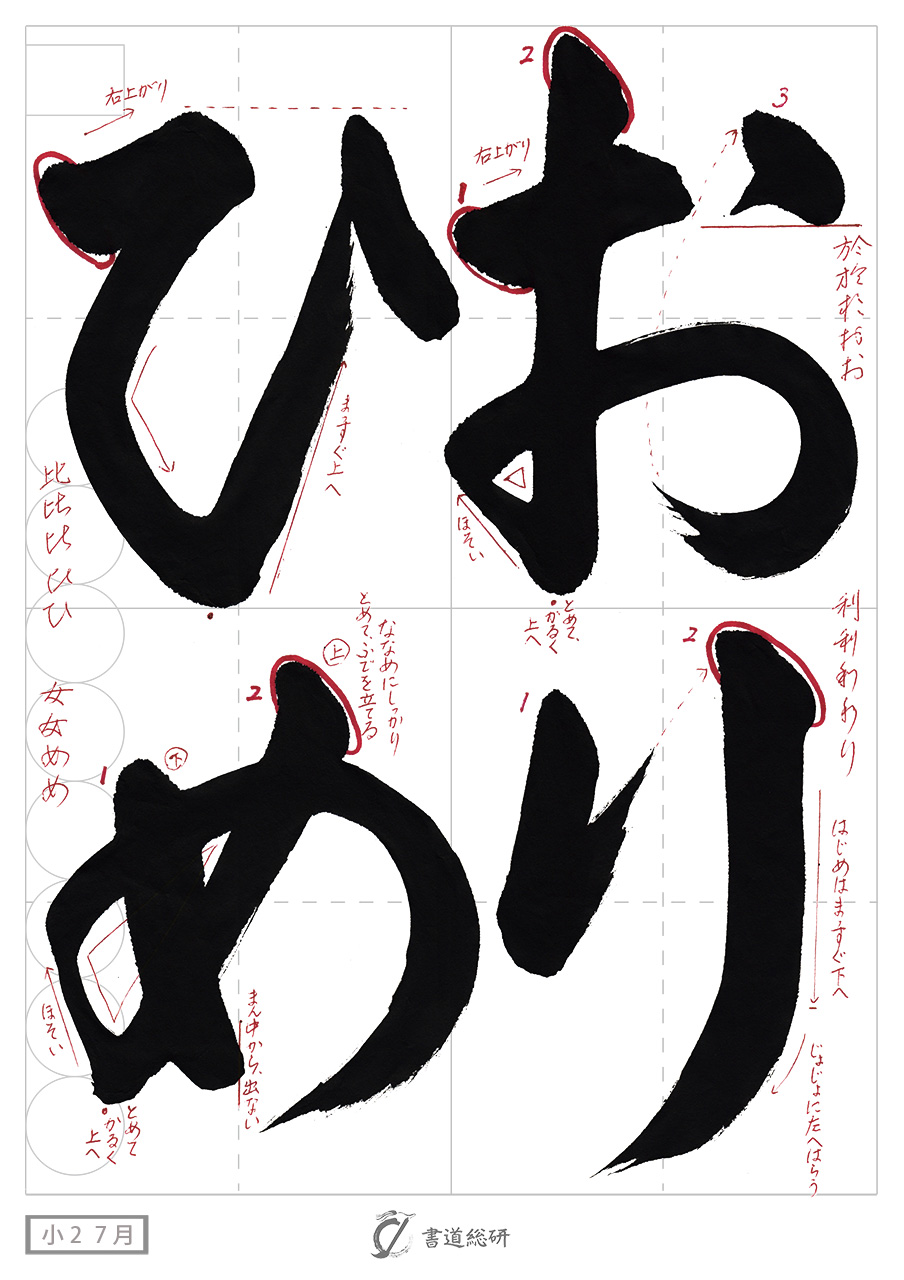 おり
ひめ
1
右上がり
2
3
於於於おお
とめて、
かるく
上へ
ほそい
1
2
利利利わり
はじめはまっすぐ下へ
じょじょにたへはらう
右上がり
まっすぐ上へ
比比比ひひ
女女めめ
1
下
2
上
ななめにしっかり
とめて、ふでを立てる
ほそい
とめて
かるく
上へ
まん中から、出ない
小2 7月
書道総研